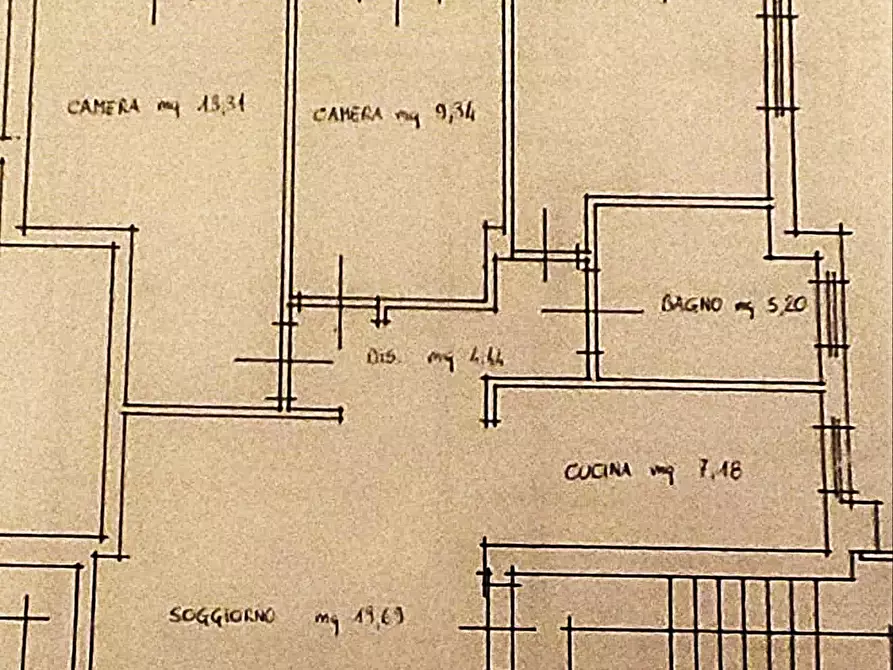 CAMERA mq 13,31
CAMERA mq 9,34
BAGNO mq 5,20
DIS. mq 4,44
CUCINA mq 7,18
SOGGIORNO mq 19,69